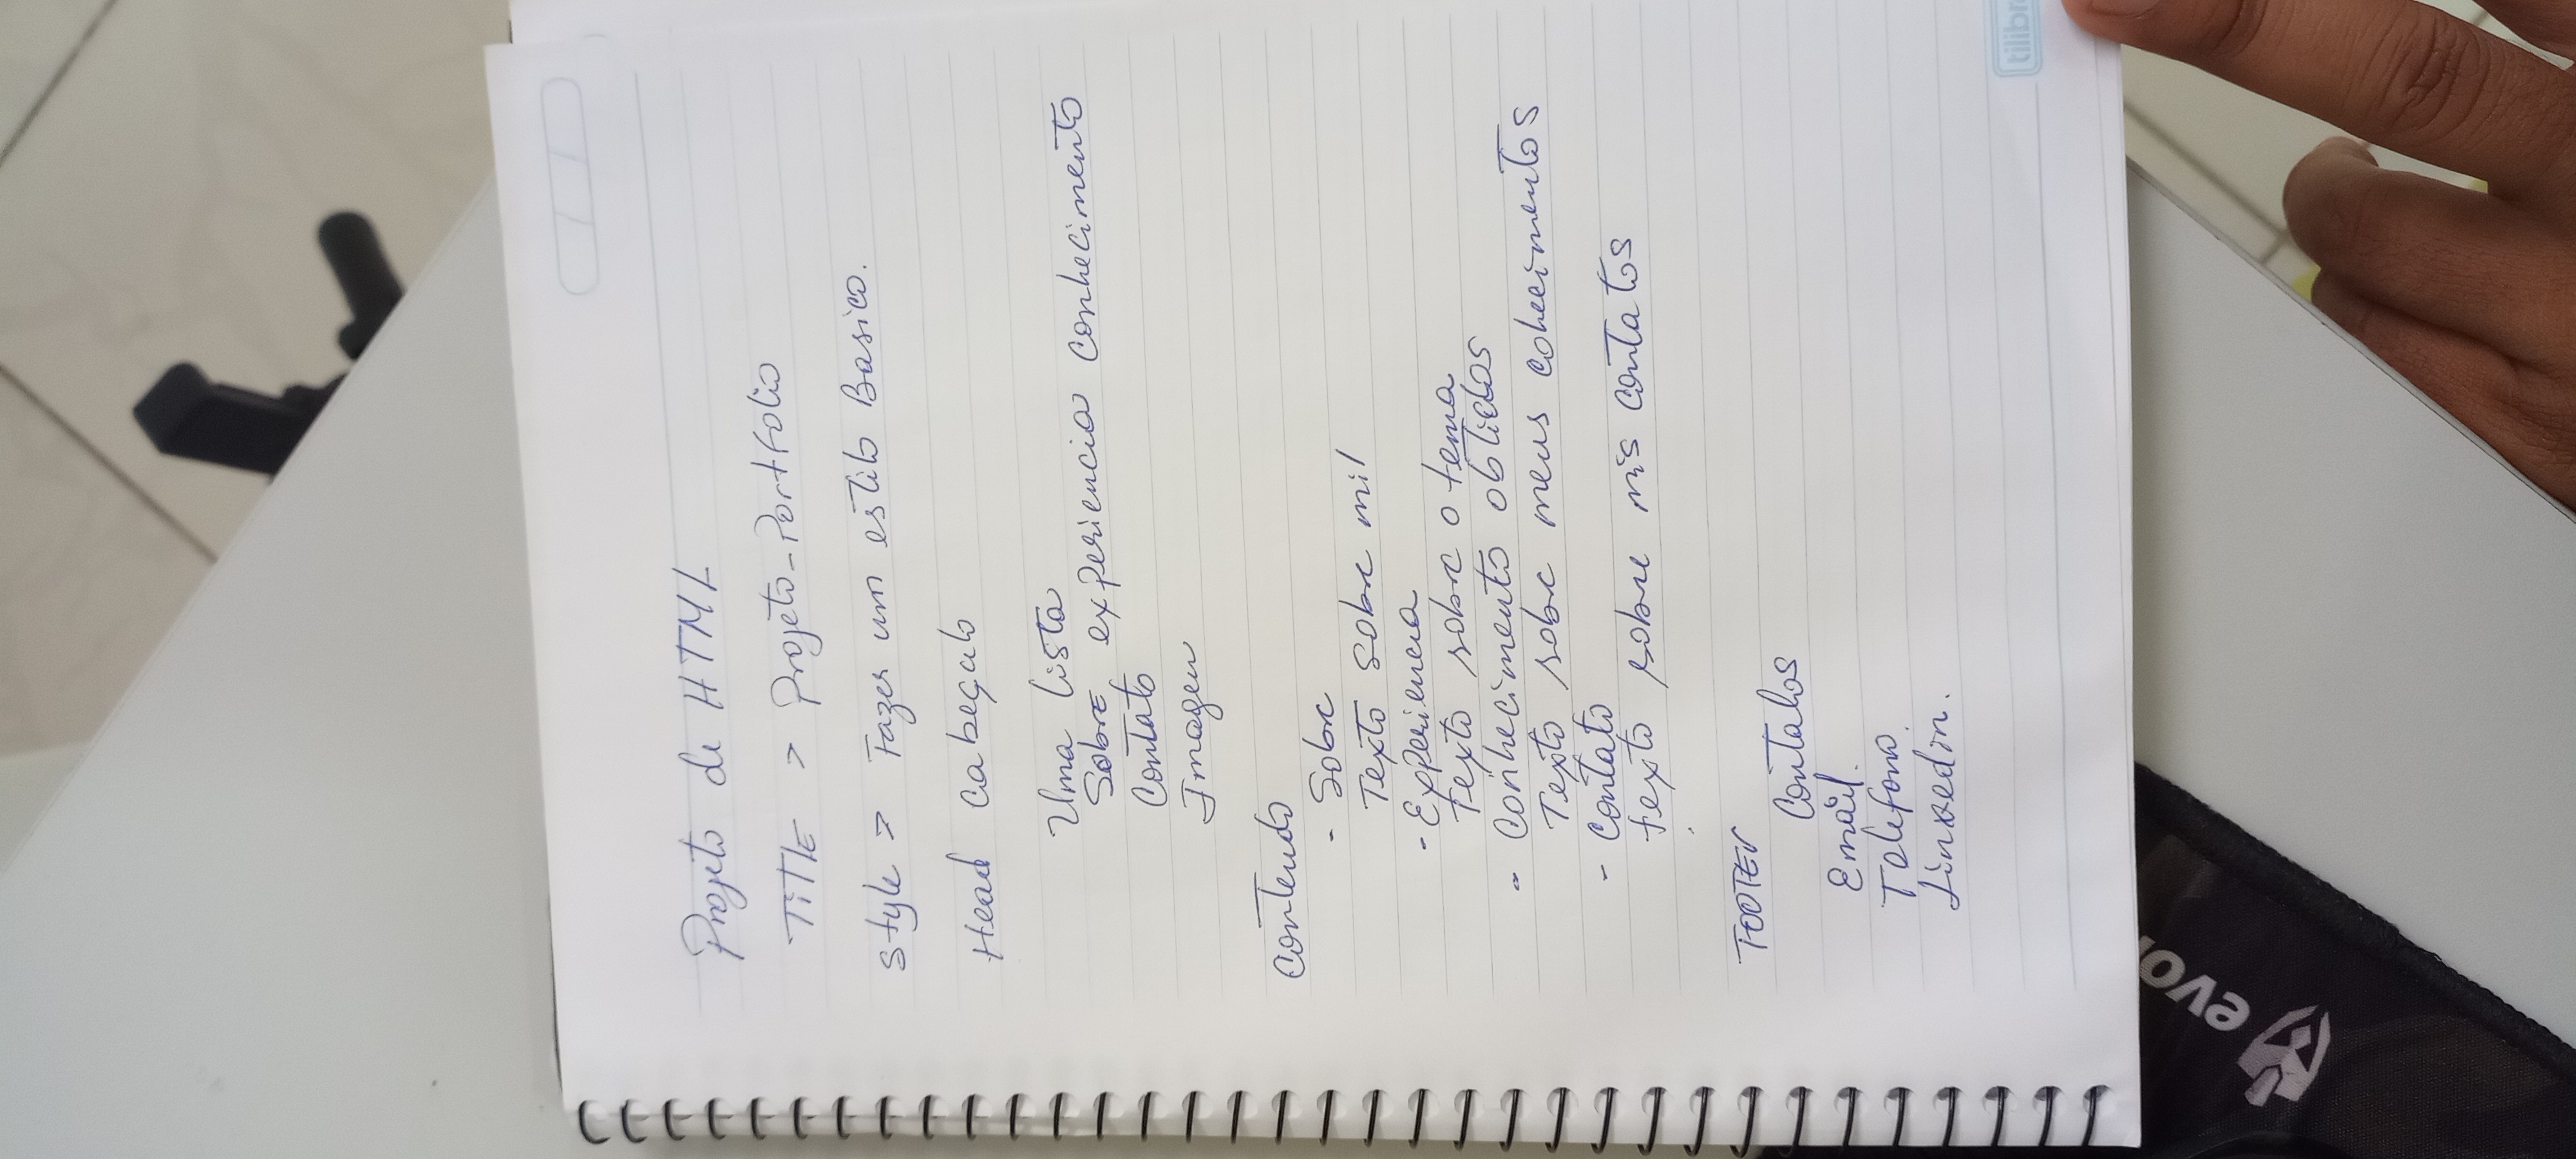 Projeto de HTML
TiTLE > Projeto-Portfolio
Style > Fazer um estilo Basico.
Head Cabeçalo
Uma lista
Sobre, experiencia conhecimento
Contato
Imagen
Contendo
- Sobre
Texto sobre mil
- Experiencia
Texto sobre o tema
- Conhecimento obtidos
Texto sobre meus cohecimentos
- Contato
texto sobre mis contatos
FOOTER
Contatos
Email.
Telefono.
Linkedin.
tilibr
evol